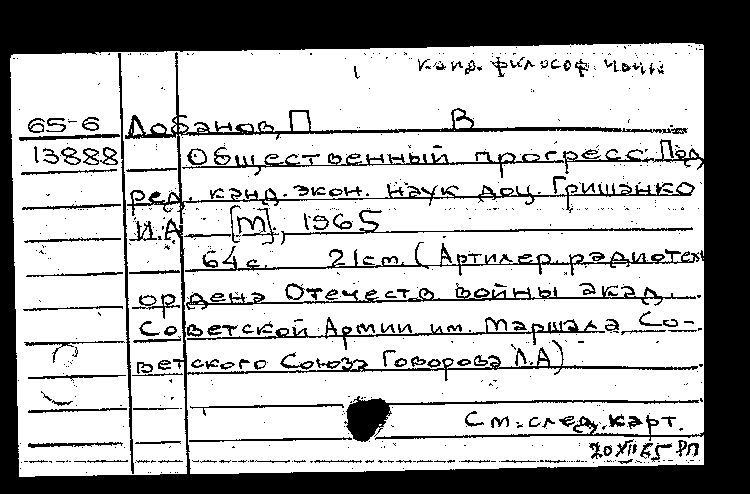 канд. философ. наук
65-6 Лобанов, П В
13888 Общественный прогресс. Под
ред. канд. экон. наук доц. Гришанко
И.А [М], 1965
64 с. 21 см. (Артилер. радиотехн
ордена Отечеств. войны акад.
Советской Армии им. Маршала Со-
ветского Союза Говорова Л.А)
См. след. карт.
20 XII 65 РП